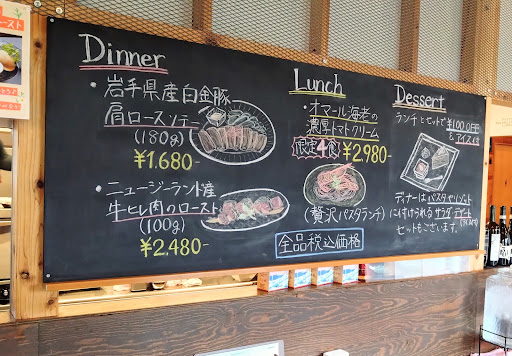 Dinner
・岩手県産白金豚
肩ロースソテー
(180g)
¥1.680-
・ニュージーランド産
牛ヒレ肉のロースト
(100g)
¥2.480-
Lunch
・オマール海老の
濃厚トマトクリーム
限定4食 ¥2.980-
(贅沢パスタランチ)
全品税込価格
Dessert
ランチとセットで¥100引き
ディナーはパスタセットに
付けられるサラダ・デザート
セットもございます。